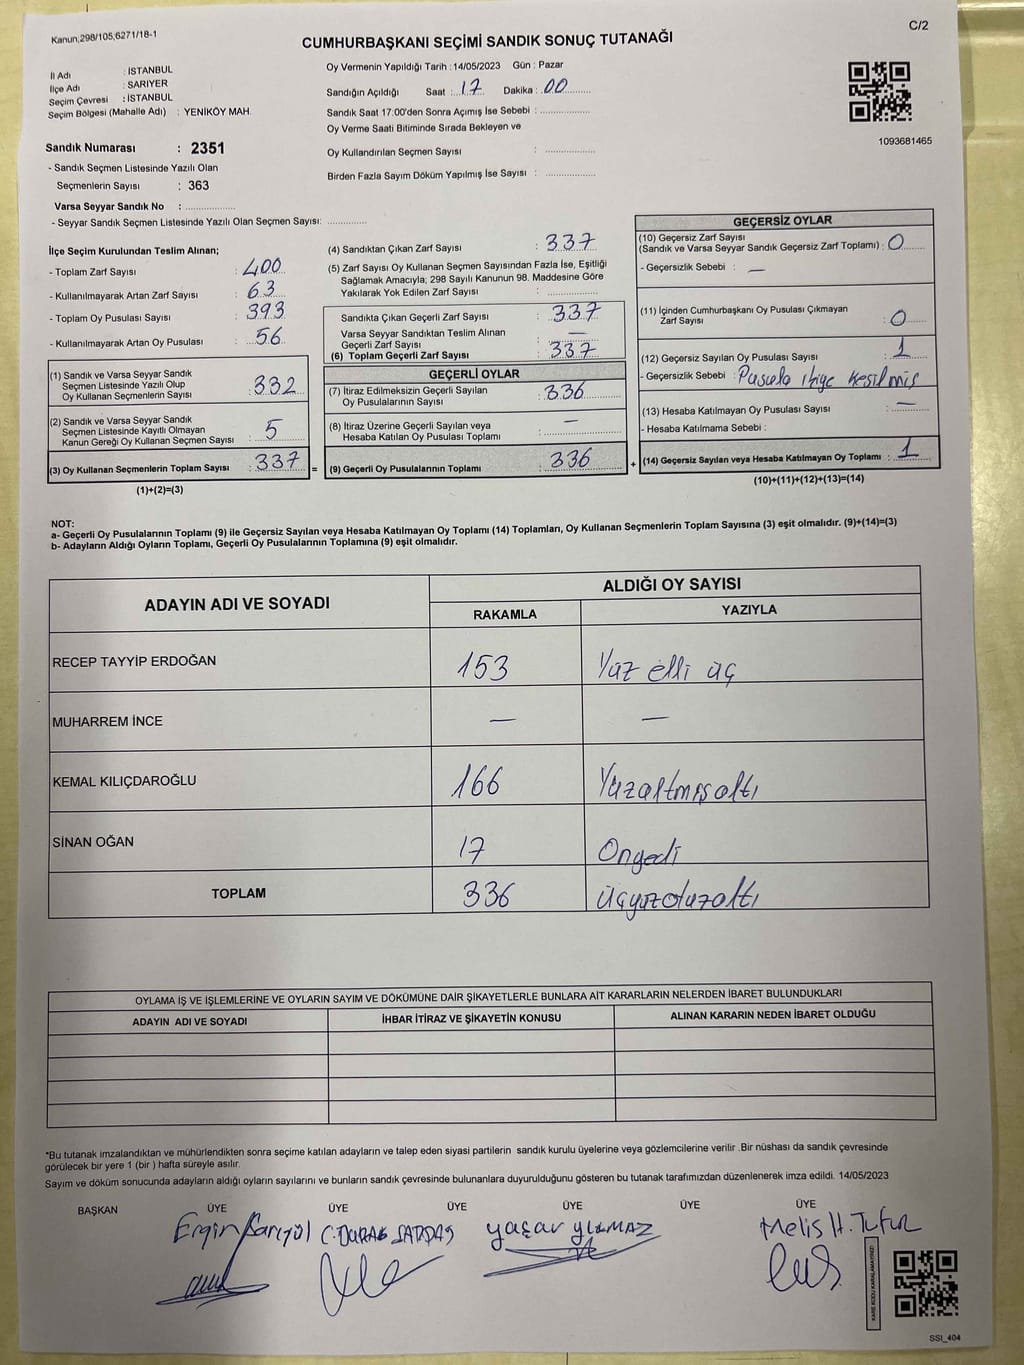 Kanun,298/105,6271/18-1
C/2
CUMHURBAŞKANI SEÇİMİ SANDIK SONUÇ TUTANAĞI
İl Adı : İSTANBUL
İlçe Adı : SARIYER
Seçim Çevresi : İSTANBUL
Seçim Bölgesi (Mahalle Adı) : YENİKÖY MAH.
Sandık Numarası : 2351
- Sandık Seçmen Listesinde Yazılı Olan
Seçmenlerin Sayısı : 363
Varsa Seyyar Sandık No : ....................
- Seyyar Sandık Seçmen Listesinde Yazılı Olan Seçmen Sayısı: ................
Oy Vermenin Yapıldığı Tarih : 14/05/2023 Gün : Pazar
Sandığın Açıldığı Saat : 17 Dakika : 00
Sandık Saat 17:00'den Sonra Açımış İse Sebebi : ....................
Oy Verme Saati Bitiminde Sırada Bekleyen ve
Oy Kullandırılan Seçmen Sayısı : ....................
Birden Fazla Sayım Döküm Yapılmış İse Sayısı : ....................
1093681465
İlçe Seçim Kurulundan Teslim Alınan;
- Toplam Zarf Sayısı : 400
- Kullanılmayarak Artan Zarf Sayısı : 63
- Toplam Oy Pusulası Sayısı : 393
- Kullanılmayarak Artan Oy Pusulası : 56
(1) Sandık ve Varsa Seyyar Sandık
Seçmen Listesinde Yazılı Olup
Oy Kullanan Seçmenlerin Sayısı : 332
(2) Sandık ve Varsa Seyyar Sandık
Seçmen Listesinde Kayıtlı Olmayan
Kanun Gereği Oy Kullanan Seçmen Sayısı : 5
(3) Oy Kullanan Seçmenlerin Toplam Sayısı : 337 =
(1)+(2)=(3)
(4) Sandıktan Çıkan Zarf Sayısı : 337
(5) Zarf Sayısı Oy Kullanan Seçmen Sayısından Fazla İse, Eşitliği
Sağlamak Amacıyla; 298 Sayılı Kanunun 98. Maddesine Göre
Yakılarak Yok Edilen Zarf Sayısı : ....................
Sandıkta Çıkan Geçerli Zarf Sayısı : 337
Varsa Seyyar Sandıktan Teslim Alınan
Geçerli Zarf Sayısı : —
(6) Toplam Geçerli Zarf Sayısı : 337
GEÇERLİ OYLAR
(7) İtiraz Edilmeksizin Geçerli Sayılan
Oy Pusulalarının Sayısı : 336
(8) İtiraz Üzerine Geçerli Sayılan veya
Hesaba Katılan Oy Pusulası Toplamı : —
(9) Geçerli Oy Pusulalarının Toplamı : 336 +
GEÇERSİZ OYLAR
(10) Geçersiz Zarf Sayısı
(Sandık ve Varsa Seyyar Sandık Geçersiz Zarf Toplamı) : 0
- Geçersizlik Sebebi : —
(11) İçinden Cumhurbaşkanı Oy Pusulası Çıkmayan
Zarf Sayısı : 0
(12) Geçersiz Sayılan Oy Pusulası Sayısı : 1
- Geçersizlik Sebebi : Pusula ikiye kesilmiş
(13) Hesaba Katılmayan Oy Pusulası Sayısı : —
- Hesaba Katılmama Sebebi :
(14) Geçersiz Sayılan veya Hesaba Katılmayan Oy Toplamı : 1
(10)+(11)+(12)+(13)=(14)
NOT:
a- Geçerli Oy Pusulalarının Toplamı (9) ile Geçersiz Sayılan veya Hesaba Katılmayan Oy Toplamı (14) Toplamları, Oy Kullanan Seçmenlerin Toplam Sayısına (3) eşit olmalıdır. (9)+(14)=(3)
b- Adayların Aldığı Oyların Toplamı, Geçerli Oy Pusulalarının Toplamına (9) eşit olmalıdır.
ADAYIN ADI VE SOYADI
ALDIĞI OY SAYISI
RAKAMLA YAZIYLA
RECEP TAYYİP ERDOĞAN 153 Yüz elli üç
MUHARREM İNCE — —
KEMAL KILIÇDAROĞLU 166 Yüzaltmışaltı
SİNAN OĞAN 17 Onyedi
TOPLAM 336 üçyüzotuzaltı
OYLAMA İŞ VE İŞLEMLERİNE VE OYLARIN SAYIM VE DÖKÜMÜNE DAİR ŞİKAYETLERLE BUNLARA AİT KARARLARIN NELERDEN İBARET BULUNDUKLARI
ADAYIN ADI VE SOYADI İHBAR İTİRAZ VE ŞİKAYETİN KONUSU ALINAN KARARIN NEDEN İBARET OLDUĞU
*Bu tutanak imzalandıktan ve mühürlendikten sonra seçime katılan adayların ve talep eden siyasi partilerin sandık kurulu üyelerine veya gözlemcilerine verilir .Bir nüshası da sandık çevresinde
görülecek bir yere 1 (bir ) hafta süreyle asılır.
Sayım ve döküm sonucunda adayların aldığı oyların sayılarını ve bunların sandık çevresinde bulunanlara duyurulduğunu gösteren bu tutanak tarafımızdan düzenlenerek imza edildi. 14/05/2023
BAŞKAN ÜYE ÜYE ÜYE ÜYE ÜYE ÜYE
Ergin Sarıgül C. BURAK SARDAŞ yaşar yILMAZ Melis H. Tufur
KARE KODU KARALAMAYINIZ!
SSI_404